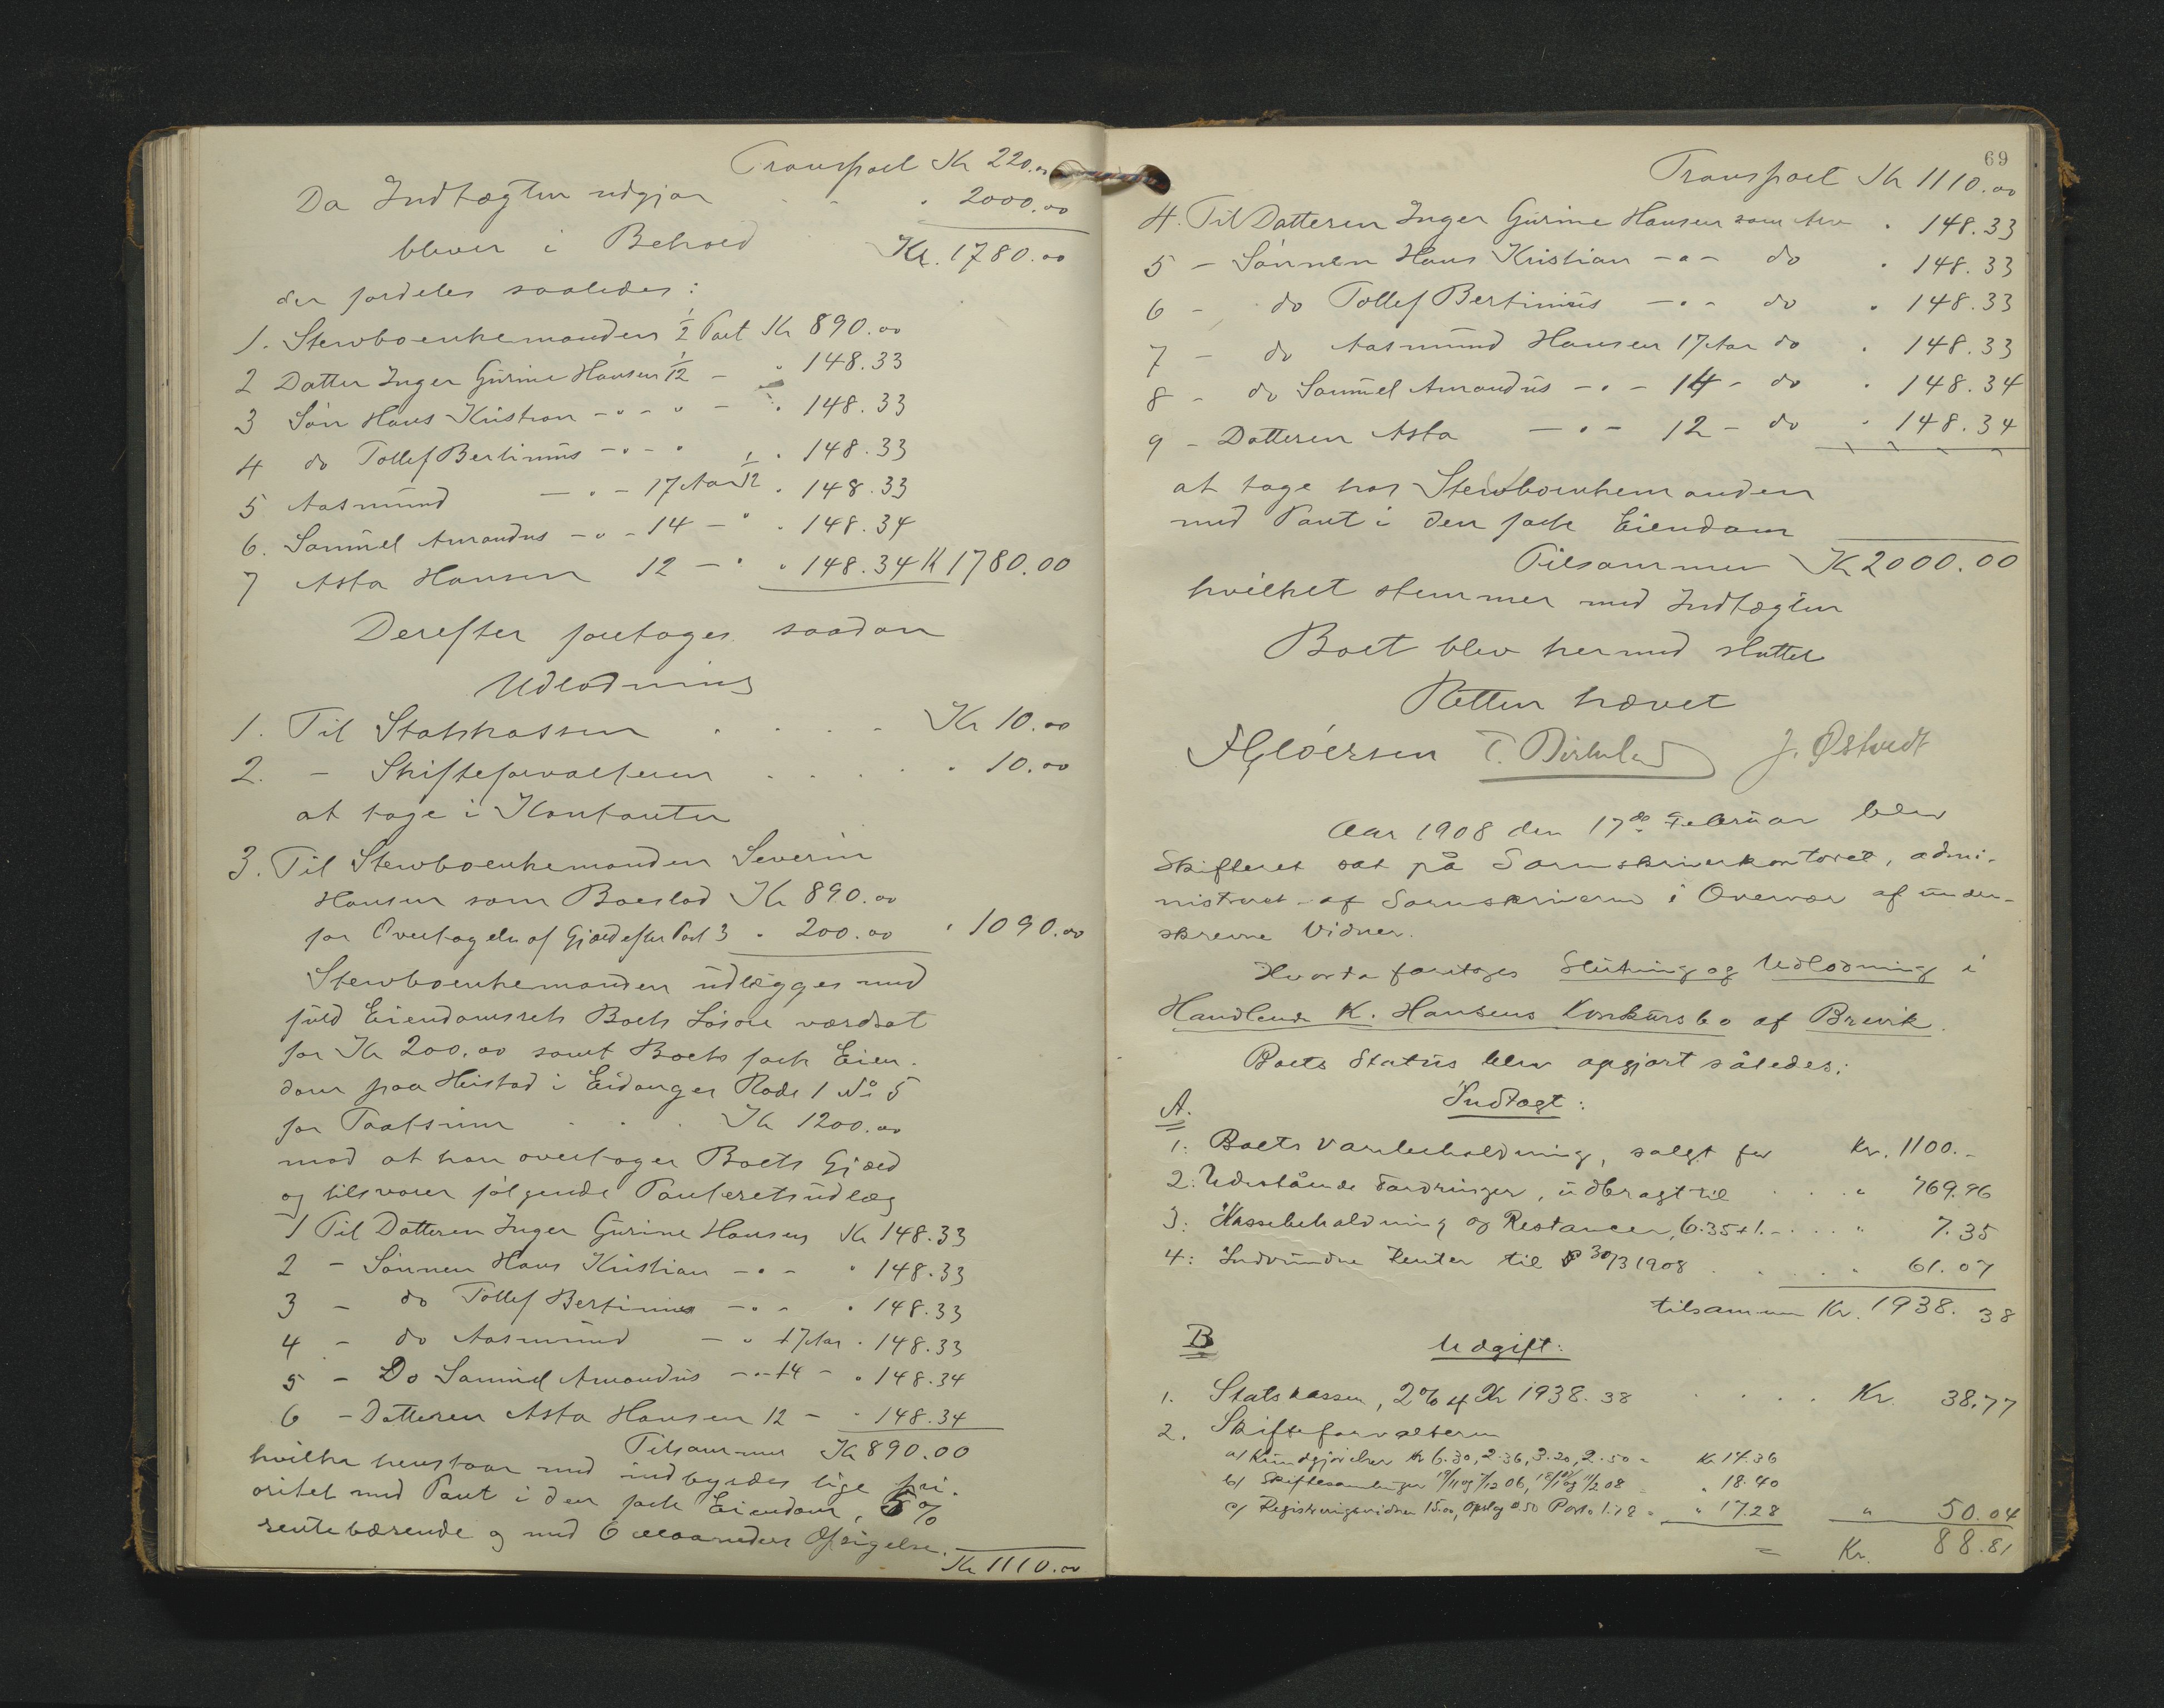 Transport Kr 220.00
Da Indtægten udgjør . . . " 2000.00
bliver i Behold Kr. 1780.00
der fordeles saaledes:
1. Stervboenkemanden 1/2 Part Kr 890.00
2 Datter Inger Gurine Hansen 1/12 - " 148.33
3 Søn Hans Kristian - " - " - " 148.33
4 do Tollef Bertinius - " - " " 148.33
5 Aasmund - " - 17 Aar 1/12 " 148.33
6. Samuel Amandus - " - 14 - " " 148.34
7 Asta Hansen 12 - " " 148.34 K 1780.00
Derefter foretages saadan
Udlodning
1. Til Statskassen . . . . Kr 10.00
2. - Skifteforvalteren . . . . " 10.00
at tage i Kontanter
3. Til Stervboenkemanden Severin
Hansen som Boeslod Kr 890.00
for Overtagelse af Gjæld efter Post 3 " 200.00 " 1090.00
Stervboenkemanden udlægges med
fuld Eiendomsret Boets Løsøre værdsat
for Kr 200.00 samt Boets faste Eien-
dom paa Heistad i Eidanger Rode 1 No 5
for Taxtsum . . . Kr 1200.00
mod at han overtager Boets Gjæld
og tilsvarer følgende Panteretsudlæg
1 Til Datteren Inger Gurine Hansen Kr 148.33
2 - Sønnen Hans Kristian - " - " 148.33
3 - do Tollef Bertinius - " - " 148.33
4 - do Aasmund - " 17 Aar " 148.33
5 - Do Samuel Amandus - " - 14 - " 148.34
6 - Datteren Asta Hansen 12 - " 148.34
Tilsammen Kr 890.00
hvilke henstaar med indbyrdes lige pri-
oritet med Pant i den faste Eiendom, 5%
rentebærende og med 6 Maaneders Opsigelse.
Kr 1110.00
69
Transport Kr 1110.00
4. Til Datteren Inger Gurine Hansen som Arv " 148.33
5 - Sønnen Hans Kristian - " - do " 148.33
6 - do Tollef Bertinius - " - do " 148.33
7 - do Aasmund Hansen 17 Aar do " 148.33
8 - do Samuel Amandus - " - 14 - do " 148.34
9 - Datteren Asta - " - 12 - do " 148.34
at tage hos Stervboenkemanden
med Pant i den faste Eiendom
Tilsammen Kr 2000.00
hvilket stemmer med Indtægten
Boet blev hermed sluttet
Retten hævet
J. Østvedt
Aar 1908 den 17de Februar blev
Skifteret sat på Sorenskriverkontoret, admi-
nistreret af Sorenskriveren i Overvær af under-
skrevne Vidner.
Hvorda foretoges Slutning og Udlodning i
Handlende K. Hansens Konkursbo af Brevik.
Boets Status blev opgjort således:
A. Indtægt:
1: Boets varebeholdning, solgt for Kr. 1100.-
2: Udestående Fordringer, udbragt til . . . " 769.96
3: Kassebeholdning og Restancer, 6.35 + 1.- . . . " 7.35
4: Indvundne Renter til 30/3 1908 . . . . " 61.07
tilsammen Kr. 1938.38
B Udgift:
1. Statskassen, 2% af Kr 1938.38 . . . . Kr. 38.77
2. Skifteforvalteren
a/ Kundgjørelser Kr 6.30, 2.36, 3.20, 2.50 = Kr. 14.36
b/ Skiftesamlinger " 18.40
c/ Registreringsvidner 15.00, Opslag 0.50 Porto 1.78 = " 17.28 " 50.04
= Kr. 88.81